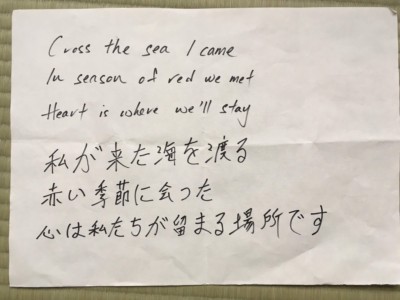 Cross the sea I came
In season of red we met
Heart is where we'll stay
私が来た海を渡る
赤い季節に会った
心は私たちが留まる場所です